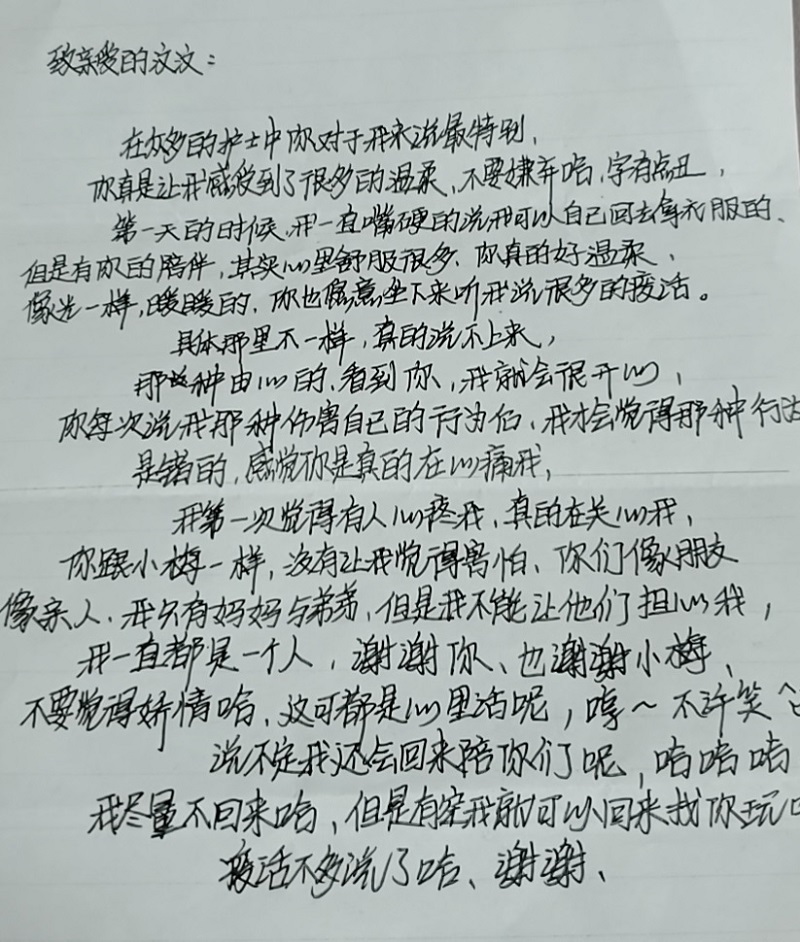 致亲爱的汶汶：
在众多的护士中你对于我来说最特别、
你真是让我感受到了很多的温柔、不要嫌弃哈、字有点丑，
第一天的时候、我一直嘴硬的说我可以自己回去拿衣服的、
但是有你的陪伴，其实心里舒服很多、你真的好温柔、
像光一样，暖暖的、你也愿意坐下来听我说很多的废话。
具体那里不一样，真的说不上来，
那种由心的、看到你，我就会很开心，
你每次说我那种伤害自己的行为后、我才会觉得那种行为
是错的，感觉你是真的在心痛我，
我第一次觉得有人心疼我、真的在关心我，
你跟小梅一样，没有让我觉得害怕、你们像朋友
像亲人、我只有妈妈与弟弟，但是我不能让他们担心我，
我一直都是一个人，谢谢你、也谢谢小梅、
不要觉得矫情哈、这可都是心里话呢，哼～不许笑
说不定我还会回来陪你们呢，哈哈哈
我尽量不回来哈，但是有空我就可以回来找你玩
废话不多说了哈、谢谢、